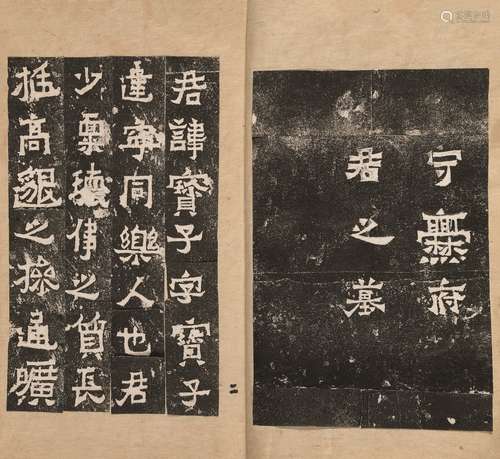 守爨府
君之墓
君諱寶子字寶子
建寧同樂人也君
少稟瓌偉之質長
挺高邈之操通曠
二